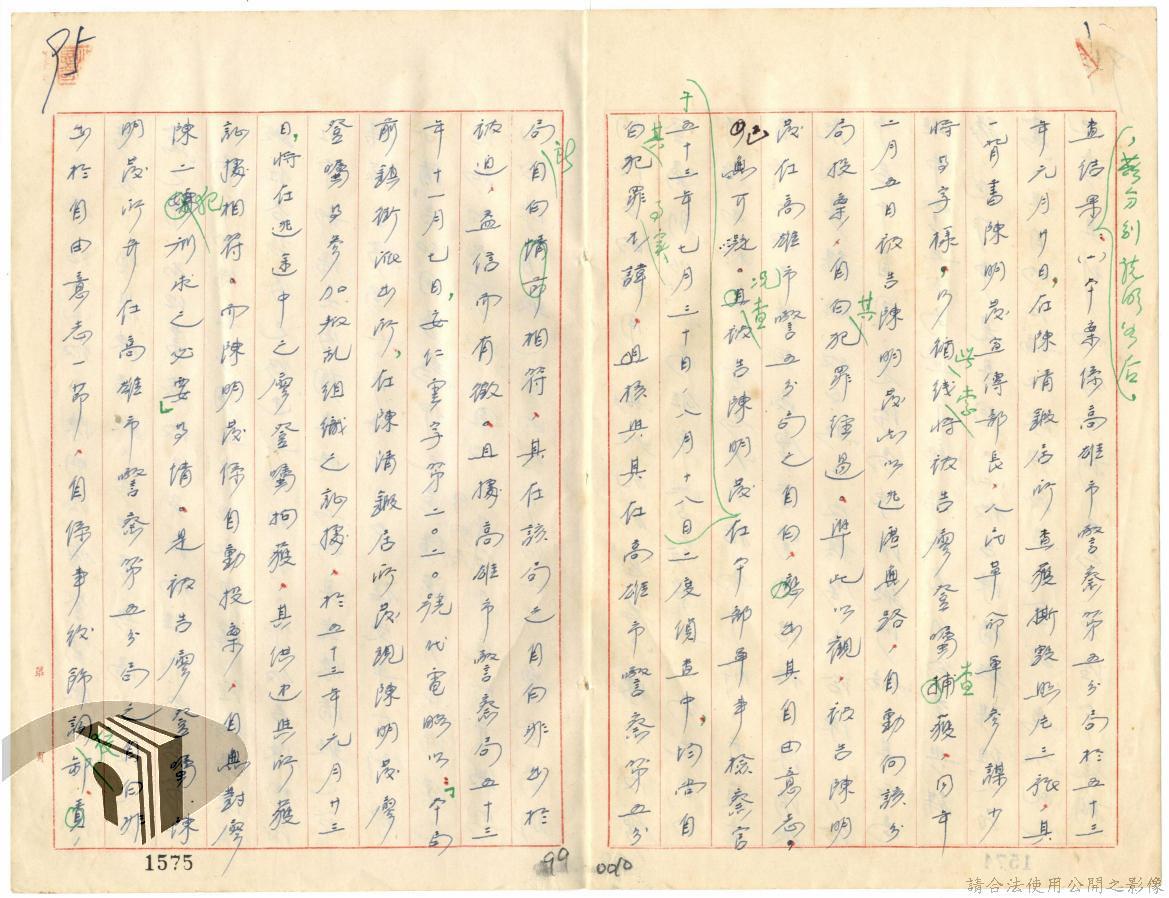 查結果：(一)本案係高雄市警察第五分局於五十三
年元月廿日，在陳清鍛居所查獲撕毀照片三張，其
一背書陳明茂宣傳部長，人民革命軍參謀少
將等字樣，乃循線將被告廖登囑捕獲，同年
二月五日被告陳明茂知以逃匿無路，自動向該分
局投案，自白犯罪經過。準此以觀，被告陳明
茂在高雄市警五分局之自白，應出其自由意志，
已無可疑。且被告陳明茂在本部軍事檢察官
五十三年七月三十日八月十八日二度偵查中，均尚自
白犯罪不諱，且核與其在高雄市警察第五分
局自白情節相符，其在該局之自白非出於
被迫，益信而有徵。且據高雄市警察局五十三
年十一月七日，安仁字第二〇二〇號代電略以：「本局
前鎮街派出所，在陳清鍛居所發現陳明茂廖
登囑等參加叛亂組織之証據，於五十三年元月廿三
日，將在逃途中之廖登囑拘獲，其供述與所獲
証據相符。而陳明茂係自動投案，自無對廖
陳二犯刑求之必要」等情。是被告廖登囑、陳
明茂所弁在高雄市警察第五分局之自白非
出於自由意志一節，自係事後飾詞
，無分別說明如后。
其
此
查
況查
于
其
等案
所
犯
1575
99
0010
請合法使用公開之影像